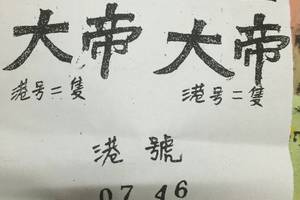 大帝 大帝
港号二隻 港号二隻
港號
07 46